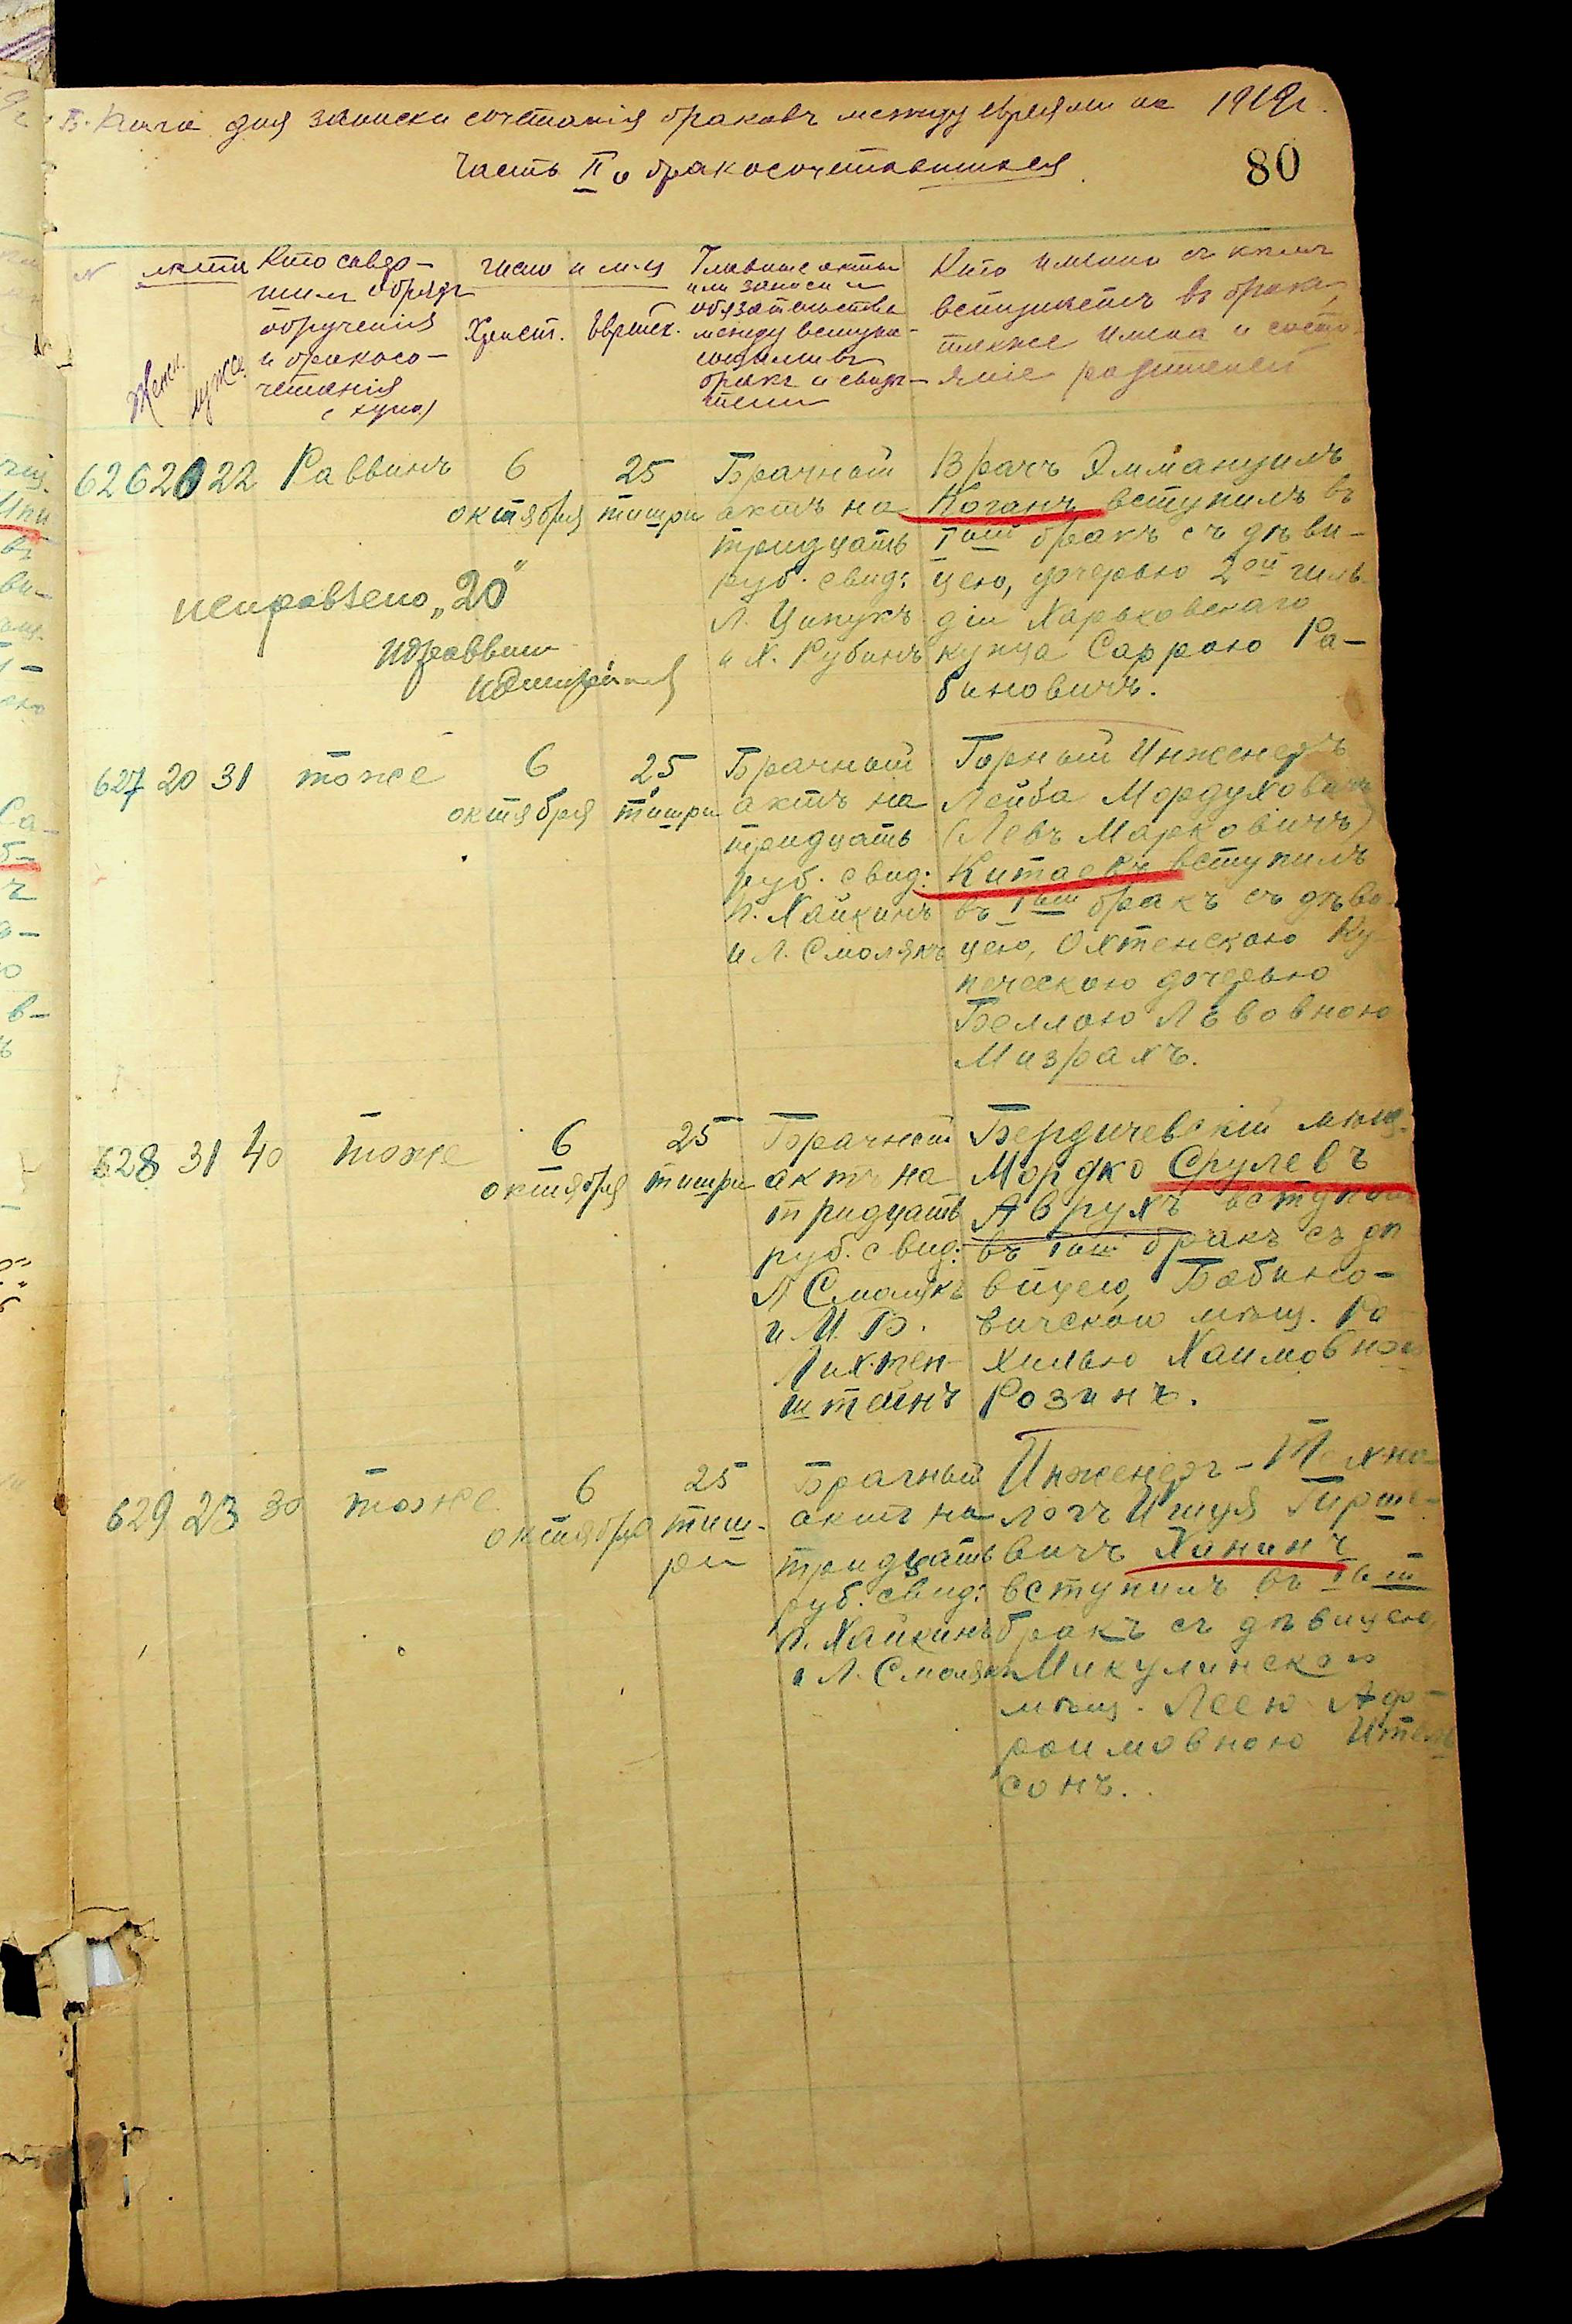 Книга для записки сочетанія браковъ между евреями на 1919г.
Часть II о бракосочетавшихся
80
№ лета
Жены мужа
Кто совер-
шилъ обрядъ
обрученія
и бракосо-
четанія
(хупа)
число и м-цъ
Христ. Еврейск.
Главные акты
или записи и
обязательства
между вступа-
ющими въ
бракъ и свидѣ-
тели
Кто именно съ кемъ
вступаетъ въ бракъ,
также имена и состо-
яніе родителей
626 20 22 Раввинъ
6
октября
25
тишри
исправлено „20“
Брачный
актъ на
тридцать
руб. свид:
Л. Ципукъ
и Х. Рубинъ
Врачъ Эммануилъ
Коганъ вступилъ въ
1ый бракъ съ дѣви-
цею, дочерью 2ой гиль-
діи Харьковскаго
купца Саррою Ра-
биновичъ.
627 20 31 тоже
6
октября
25
тишри
Брачный
актъ на
тридцать
руб. свид:
Л. Хайкинъ
и Л. Смолякъ
Горный Инженеръ
Лейба Мордуховичъ
(Левъ Марковичъ)
Китаевъ вступилъ
въ 1ый бракъ съ дѣви-
цею, Охтенскою Ку-
печескою дочерью
Беллою Львовною
Мизрахъ.
628 31 40 тоже
6
октября
25
тишри
Брачный
актъ на
тридцать
руб. свид:
Л. Смолякъ
и И. Б.
Лихтен-
штейнъ
Бердичевскій мѣщ.
Мордко Срулевъ
Аврухъ вступилъ
въ 1ый бракъ съ дѣ-
вицею, Бабино-
вичской мѣщ. Ра-
хилью Хаимовною
Розинъ.
629 23 30 тоже
6
октября
25
тиш-
ри
Брачный
актъ на
тридцать
руб. свид:
Л. Хайкинъ
и Л. Смолякъ
Инженеръ-Техно-
логъ Ишуя Гирше-
вичъ Ханинъ
вступилъ въ 1ый
бракъ съ дѣвицею,
Микулинскою
мѣщ. Леею Аф-
роимовною Ительсонъ.